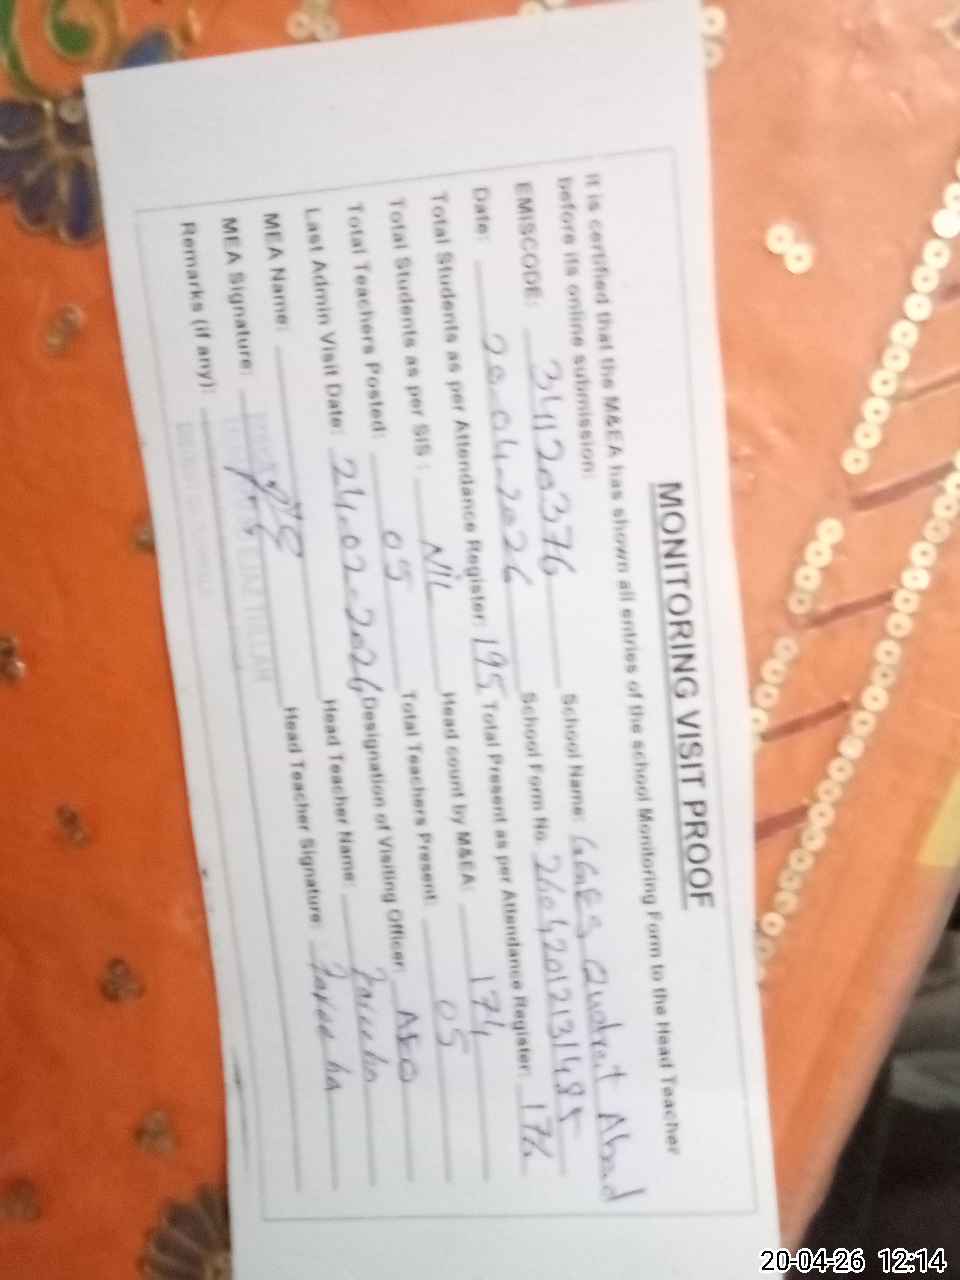 MONITORING VISIT PROOF
It is certified that the M&EA has shown all entries of the school Monitoring Form to the Head Teacher
before its online submission:
EMISCODE: 34120376 School Name: GGES Qudrat Abad
Date: 20-04-2026 School Form No. 26042012131485
Total Students as per Attendance Register: 195 Total Present as per Attendance Register: 176
Total Students as per SIS : Nil Head count by M&EA: 174
Total Teachers Posted: 05 Total Teachers Present: 05
Last Admin Visit Date: 24-02-2026 Designation of Visiting Officer: AEO
MEA Name: Head Teacher Name: Fareeha
MEA Signature: Head Teacher Signature: Fareeha
Remarks (if any):
20-04-26 12:14